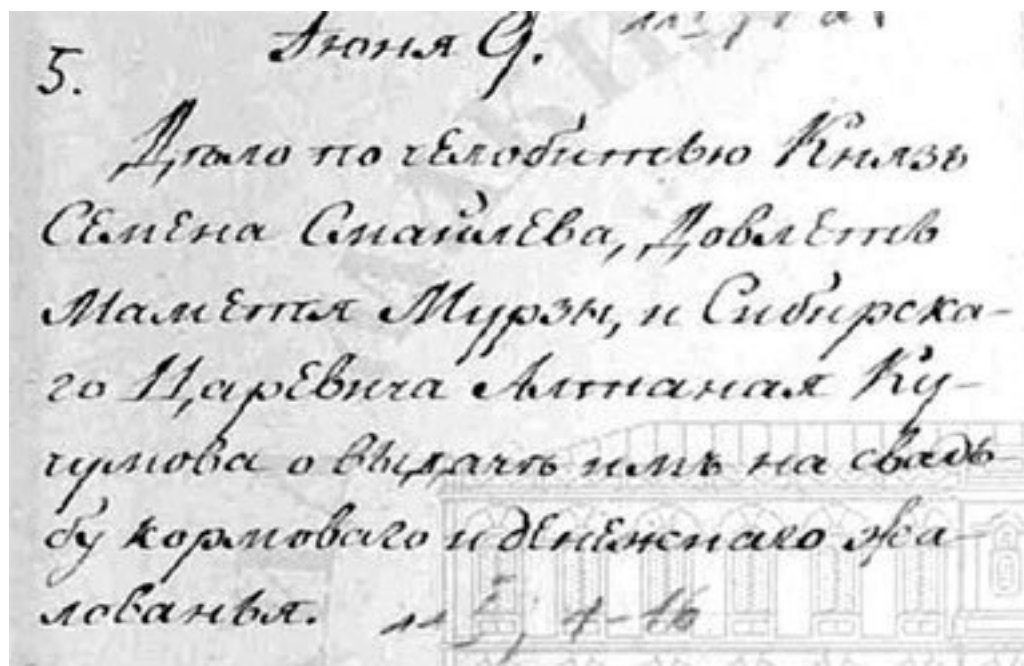 Июня 9.
5.
Дѣло по челобитью Князь
Семена Смайлева, Довлетъ
Маметя Мурзы, и Сибирска-
го Царевича Алтаная Ку-
чумова о выдачѣ имъ на свадь-
бу кормоваго и денежнаго жа-
лованья.